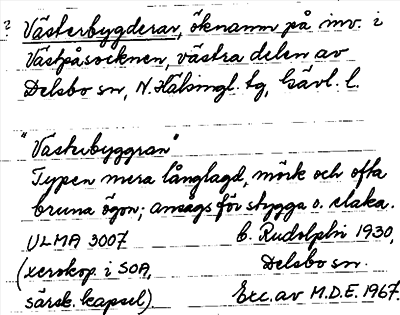 ? Västerbygderar, öknamn på inv. i
Västpåsocknen, västra delen av
Delsbo sn, N. Hälsingl. tg, Gävl. l.
"Västerbyggran"
Typen mera långlagd, mörk och ofta
bruna ögon; ansågs för stygga o. elaka.
ULMA 3007 b. Rudolphi 1930,
(xerokop. i SOA, Delsbo sn.
särsk. kapsel). Exc. av M.D.E. 1967.